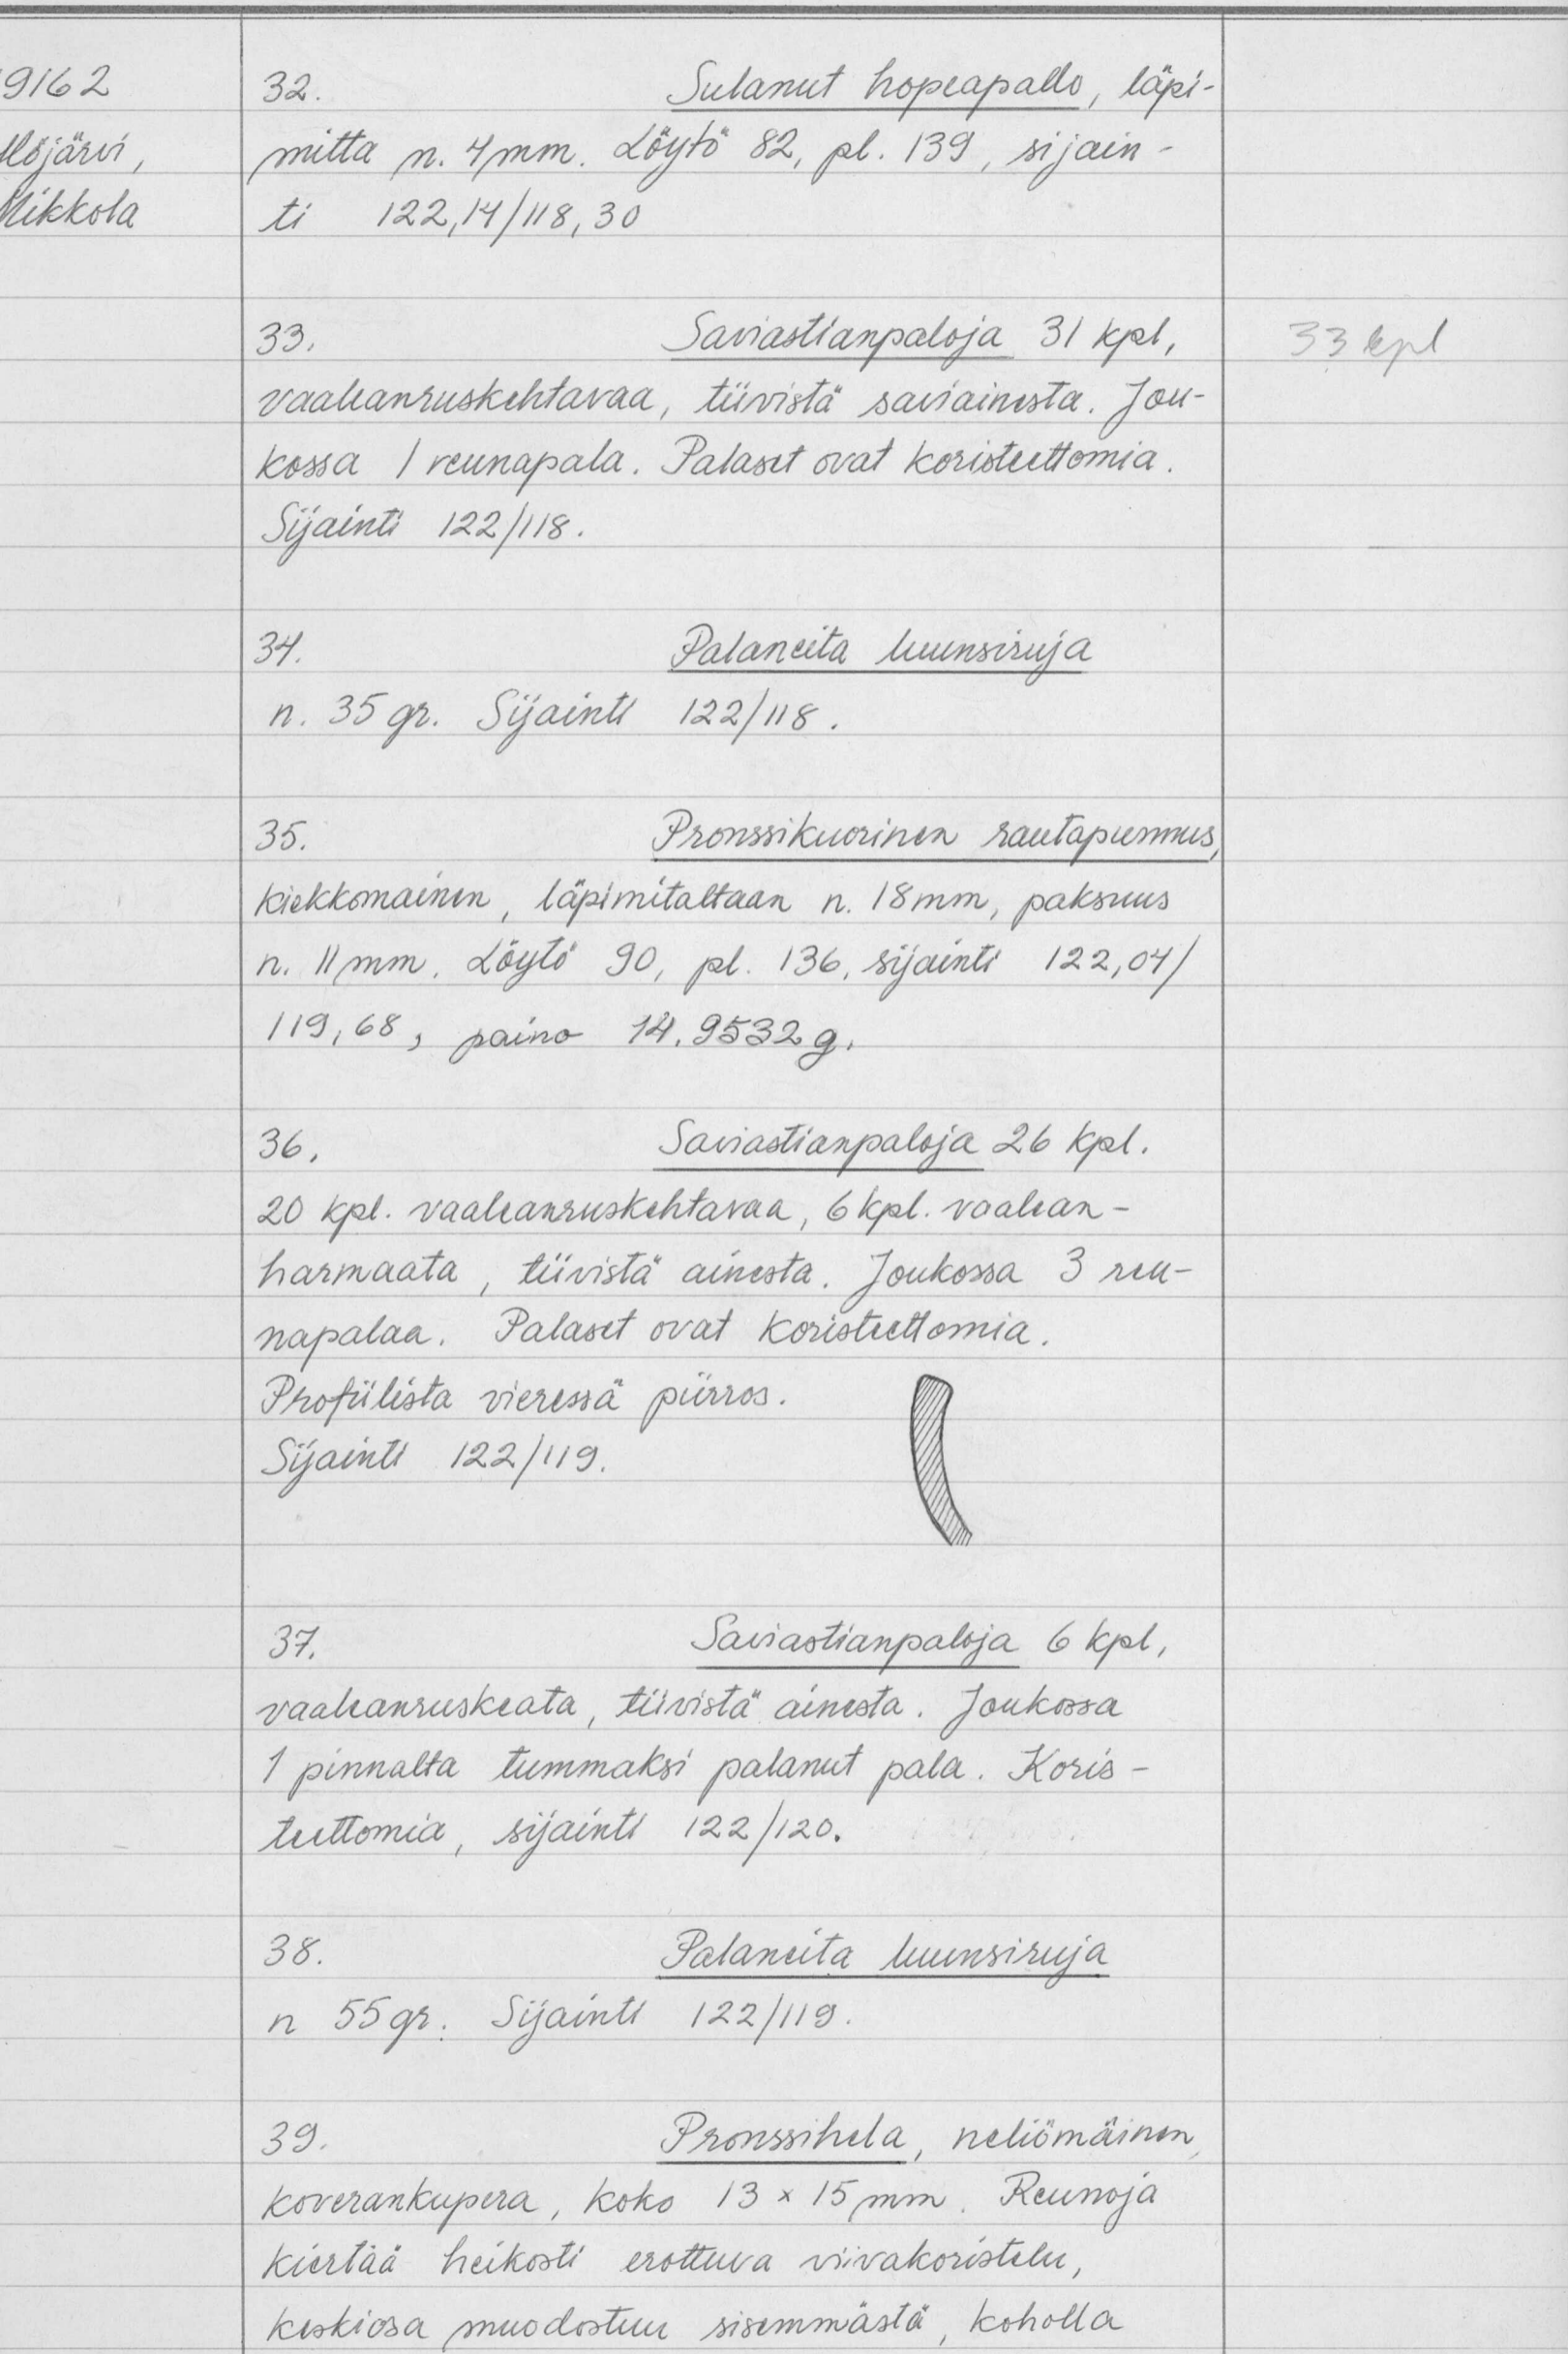 9162
32. Sulanut hopeapallo, läpi-
löjärvi,
mitta n. 4mm. Löytö 82, pl. 139, sijain-
Mikkola
ti 122,14/118,30
33. Saviastianpaloja 31 kpl,
33 kpl
vaaleanruskehtavaa, tiivistä saviainesta. Jou-
kossa 1 reunapala. Palaset ovat koristeettomia.
Sijainti 122/118.
34. Palaneita luunsiruja
n. 35 gr. Sijainti 122/118.
35. Pronssikuorinen rautapunnus,
kiekkomainen, läpimitaltaan n. 18mm, paksuus
n. 11mm. Löytö 90, pl. 136, sijainti 122,04/
119,68, paino 14.9532 g.
36. Saviastianpaloja 26 kpl.
20 kpl. vaaleanruskehtavaa, 6 kpl. vaalean-
harmaata, tiivistä ainesta. Joukossa 3 reu-
napalaa. Palaset ovat koristeettomia.
Profiilista vieressä piirros.
Sijainti 122/119.
37. Saviastianpaloja 6 kpl,
vaaleanruskeata, tiivistä ainesta. Joukossa
1 pinnalta tummaksi palanut pala. Koris-
teettomia, sijainti 122/120.
38. Palaneita luunsiruja
n 55 gr. Sijainti 122/119.
39. Pronssihela, neliömäinen,
koverankupera, koko 13 x 15 mm. Reunoja
kiertää heikosti erottuva viivakoristelu,
keskiosa muodostuu sisemmästä, koholla